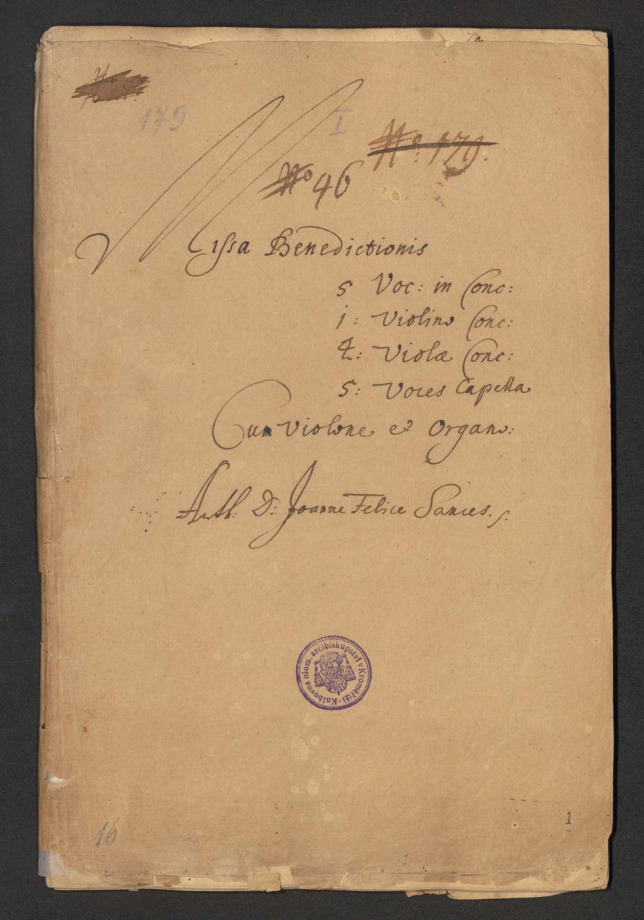 179
I
No: 179.
No 46
Missa Benedictionis
5 Voc: in Conc:
j: Violino Conc:
4: Violæ Conc:
5: Voces Capella
Cum Violone et Organo:
Auth: D: Joanne Felice Sances.
Knihovna olom. arcibiskupství v Kroměříži
16
1